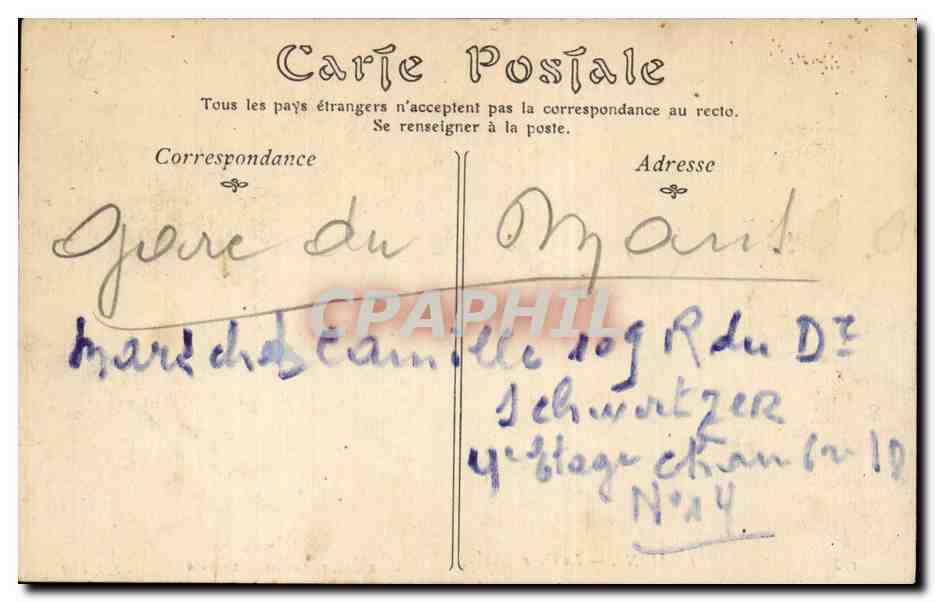 Carte Postale
Tous les pays étrangers n'acceptent pas la correspondance au recto.
Se renseigner à la poste.
Correspondance
Adresse
Gare du Mans
CPAPHIL
Maréchal Camille 109 R du Dr
Schwartzer
4e Etage
N° 14